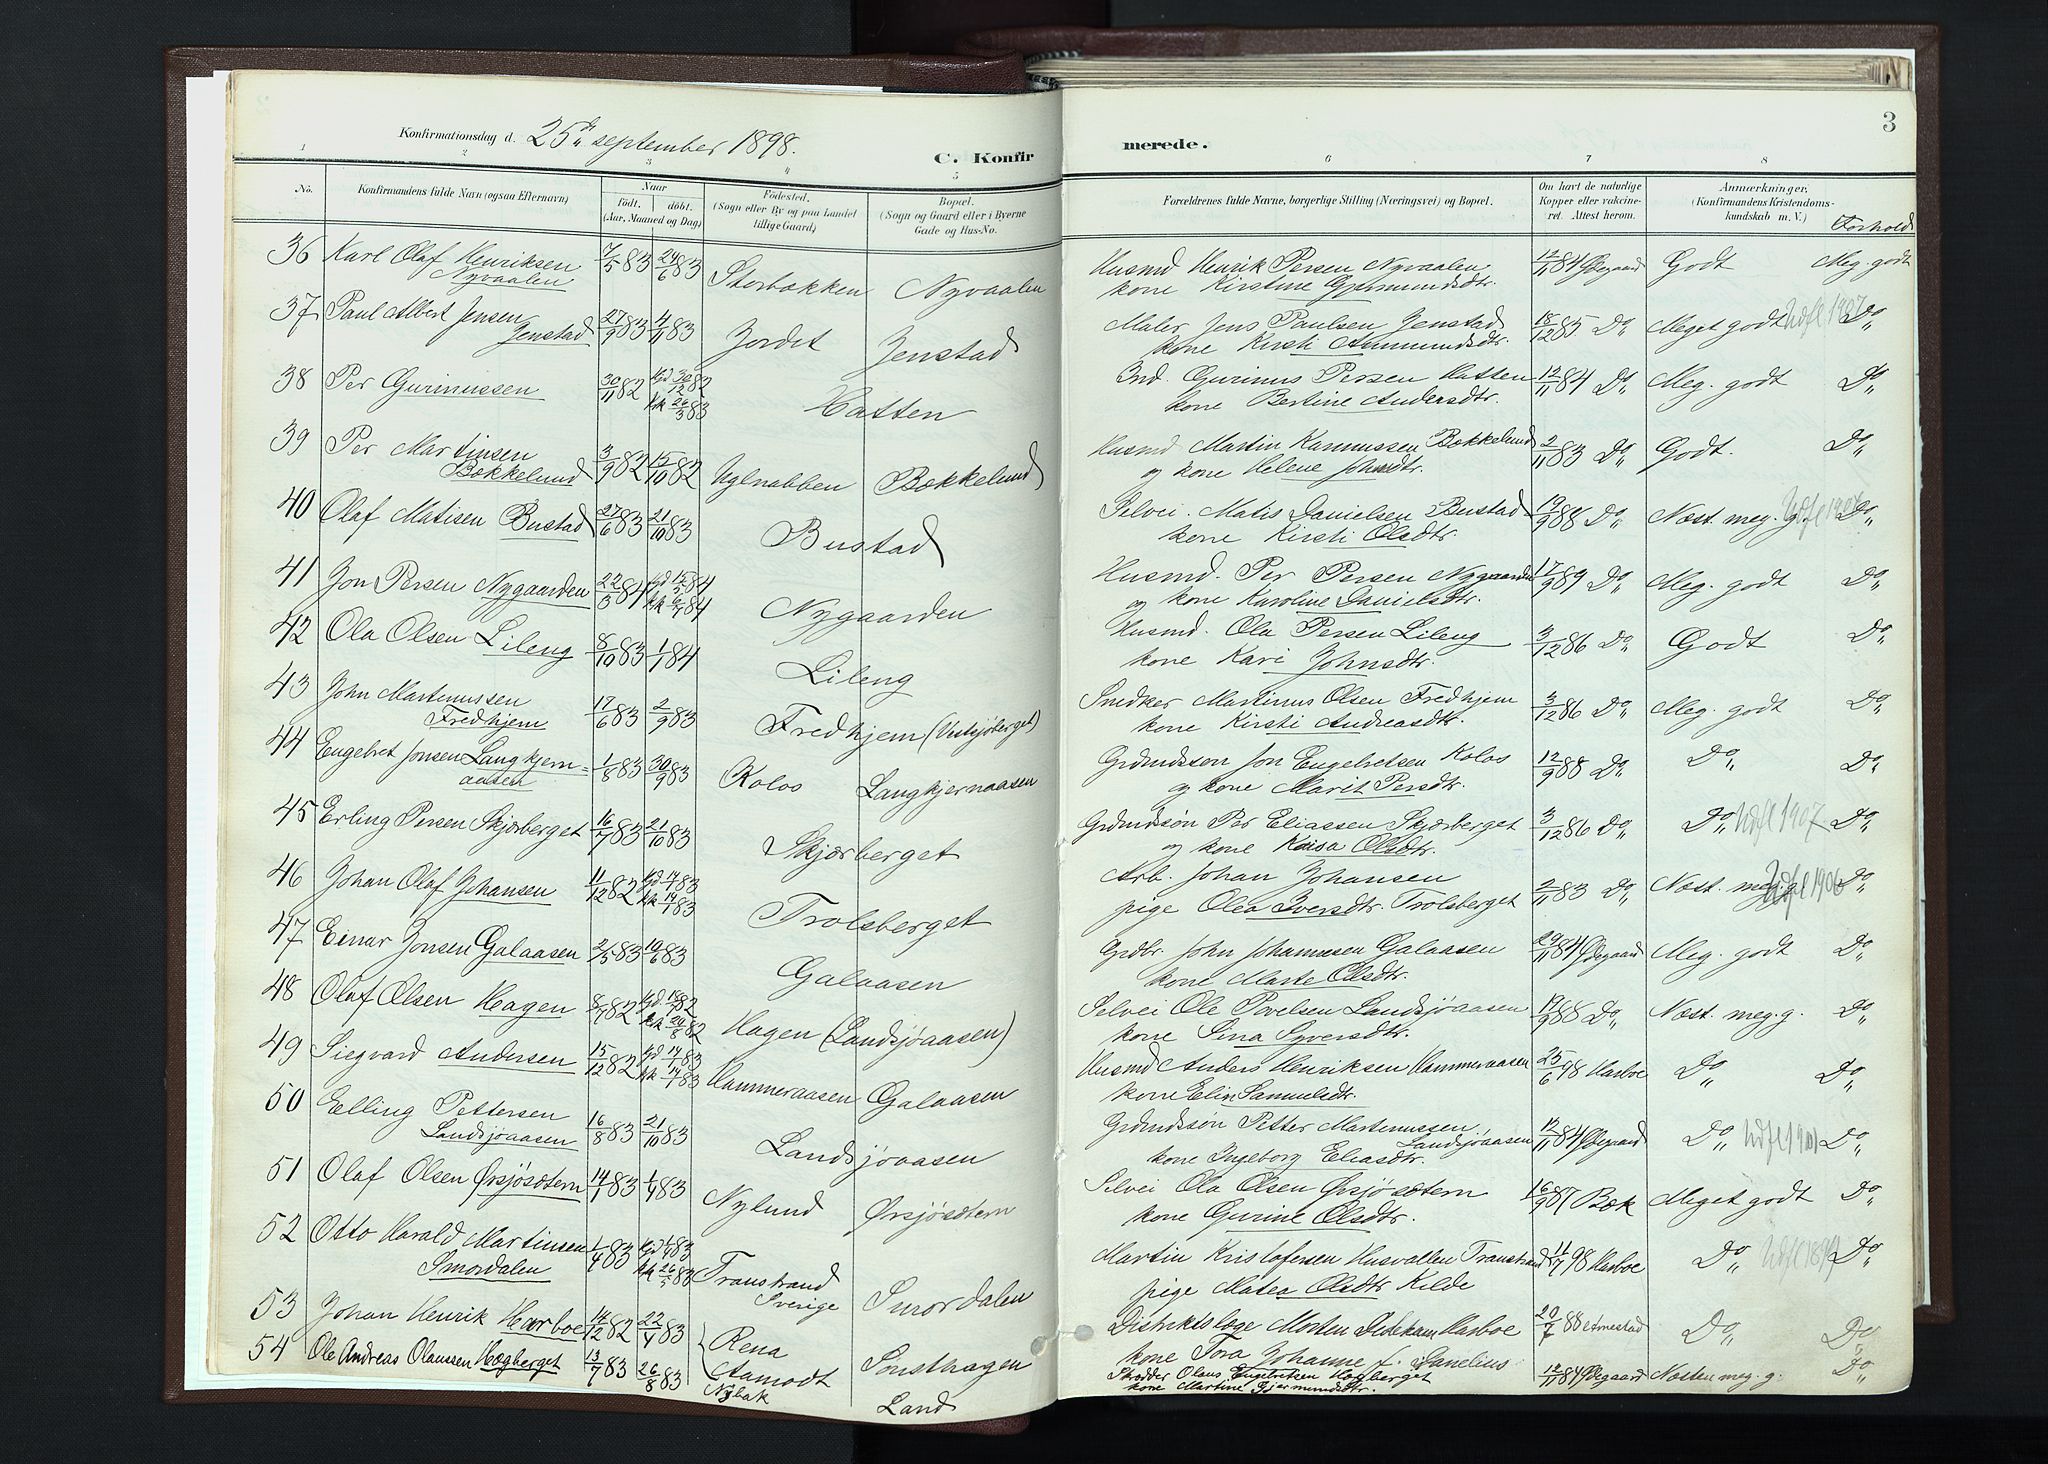 Konfirmationsdag d. 25de september 1898.
C. Konfir
merede.
3
1 2 3 4 5 6 7 8
No.
Konfirmandens fulde Navn (ogsaa Efternavn)
Naar
födt. döbt.
(Aar, Maaned og Dag)
Födested.
(Sogn eller By og paa Landet
tillige Gaard)
Bopæl.
(Sogn og Gaard eller i Byerne
Gade og Hus-No.
Forældrenes fulde Navne, borgerlige Stilling (Næringsvei) og Bopæl.
Om havt de naturlige
Kopper eller vakcine-
ret. Attest herom.
Anmærkninger.
(Konfirmandens Kristendoms-
kundskab m. V.)
Forhold
36 Karl Olaf Henriksen 7/5 83 24/6 83 Storbækken Nyvaalen Husmd Henrik Persen Nyvaalen 12/11 84 Ødegaard Godt Meg. godt
Nyvaalen kone Kirstine Gjermundsdtr.
37 Paul Albert Jensen 27/9 83 4/11 83 Jordet Jenstad Maler Jens Paulsen Jenstad 18/12 85 Do Meget godt Udfl 1907 Do
Jenstad kone Kirsti Ammundsdtr.
38 Per Gurinussen 30/11 82 hjd 30/12 82 Hatten Ind. Gurinus Persen Hatten 12/11 84 Do Meg. godt Do
kk 26/3 83 kone Bertine Andersdtr.
39 Per Martinsen 3/9 82 15/10 82 Uglnabben Bækkelund Husmd Martin Rasmussen Bækkelund 2/11 83 Do Godt. Do
Bækkelund og kone Helene Johnsdtr.
40 Olaf Matisen Bustad 27/6 83 21/10 83 Bustad Selvei. Matis Danielsen Bustad 19/9 88 Do Næst. meg. g. Do
kone Kirsti Olsdtr.
41 Jon Persen Nygaarden 22/3 84 hjd 15/5 84 Nygaarden Husmd. Per Persen Nygaarden 17/9 89 Do Meg. godt Do
kk 6/7 84 og kone Karoline Danielsdtr.
42 Ola Olsen Lileng 8/10 83 1/1 84 Lileng Husmd. Ola Persen Lileng 3/12 86 Do Godt Do
kone Kari Johnsdtr.
43 John Martinussen 17/6 83 2/9 83 Fredhjem (Vestsjøberget) Snedker Martinus Olsen Fredhjem 3/12 86 Do Meg. godt Do
Fredhjem kone Kirsti Andreasdtr.
44 Engebret Jonsen Langkjern= 1/8 83 30/9 83 Kolos Langkjernaasen Grdmdssön Jon Engebretsen Kolos 12/9 88 Do Do Do
aasen og kone Marit Persdtr.
45 Erling Persen Skjærberget 16/7 83 21/10 83 Skjærberget Grdmdssøn Per Eliassen Skjærberget 3/12 86 Do Do Udfl 1907. Do
og kone Kaisa Olsdtr.
46 Johan Olaf Johansen 11/12 82 hjd 14/1 83 Trolsberget Arb. Johan Johansen 2/11 83 Do Næst. meg. g. Udfl 1906 Do
kk 14/1 83 pige Olea Iversdtr. Trolsberget
47 Einar Jonsen Galaasen 2/5 83 10/6 83 Galaasen Grdbr John Johannesen Galaasen 29/11 84 Ødegaard Meg. godt Do
kone Marte Olsdtr.
48 Olaf Olsen Hagen 8/7 82 hjd. 18/7 82 Hagen (Landsjøaasen) Selvei Ole Povelsen Landsjøaasen 19/9 88 Do Næst. meg. g. Do
kk 20/8 82 kone Sina Syversdtr.
49 Siegvard Andersen 15/12 82 hjd 14/1 83 Hammeraasen Galaasen Husmd Anders Henriksen Hammeraasen 25/6 98 Harboe Do Do
kk 14/1 83 kone Elin Samuelsdtr.
50 Elling Pettersen 16/8 83 21/10 83 Landsjøaasen Grdmdssøn Petter Martinussen 12/11 84 Ødegaard Do Do
Landsjøaasen Landsjøaasen
kone Ingeborg Eliasdtr.
51 Olaf Olsen Ørsjösætern 14/1 83 1/4 83 Nylund Ørsjösætern Selvei Ola Olsen Ørsjösætern 16/9 87 Bæk Meget godt Do
kone Gurine Olsdtr.
52 Otto Harald Martinsen 1/4 83 hjd 1/4 83 Transtrand Smordalen Martin Kristofersen Husvallen Transtrand 11/7 98 Harboe Do Do
Smordalen kk 26/5 83 Sverige pige Matea Olsdtr Kilde
53 Johan Henrik Harboe 14/12 82 22/4 83 Rena Sonsthagen Distriktslæge Morten Dedekam Harboe 20/7 88 Do Do
Aamodt kone Tora Johanne f.
54 Ole Andreas Olaussen Hægberget 13/7 83 26/8 83 Nybak Land Skrædder Olaus Engebretsen Hægberget 12/11 84 Ødegaard Næsten meg. g. Do
kone Martine Gjermundsdtr.